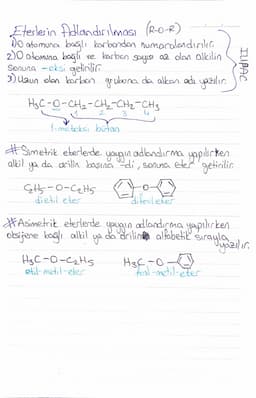 Eterlerin Adlandırılması (R-O-R)
1) O atomuna bağlı karbondan numaralandırılır.
2) O atomuna bağlı ve karbon sayısı az olan alkilin
sonuna -oksi getirilir.
3) Uzun olan karbon grubuna da alkan adı yazılır.
IUPAC
H₃C-O-CH₂-CH₂-CH₂-CH₃
1 2 3 4
1-metoksi bütan
# Simetrik eterlerde yaygın adlandırma yapılırken
alkil ya da arilin başına -di, sonuna eter getirilir.
C₂H₅-O-C₂H₅ -O-
dietil eter difenil eter
# Asimetrik eterlerde yaygın adlandırma yapılırken
oksijene bağlı alkil ya da ariller alfabetik sırayla
yazılır.
H₃C-O-C₂H₅ H₃C-O-
etil-metil-eter fenil-metil-eter